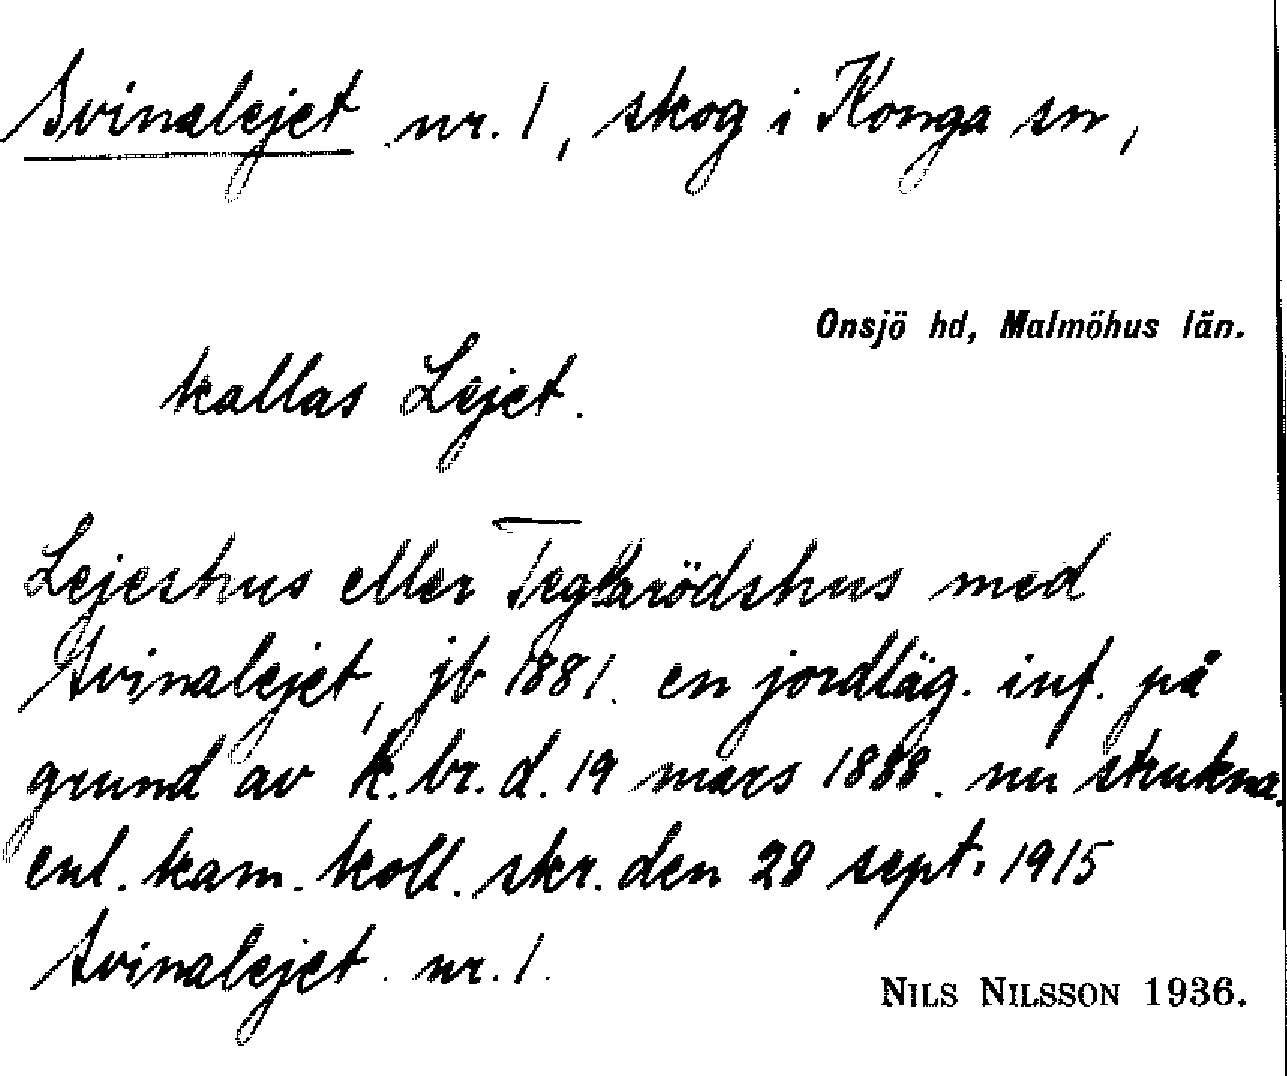 Svinalejet nr. 1, skog i Konga sn,
Onsjö hd, Malmöhus län.
kallas Lejet.
Lejeshus eller Teglarödshus med
Svinalejet, jb 1881. en jordläg. inf. på
grund av k. br. d. 19 mars 1888. nu strukna.
enl. kam. koll. skr. den 28 sept. 1915
Svinalejet nr. 1.
NILS NILSSON 1936.